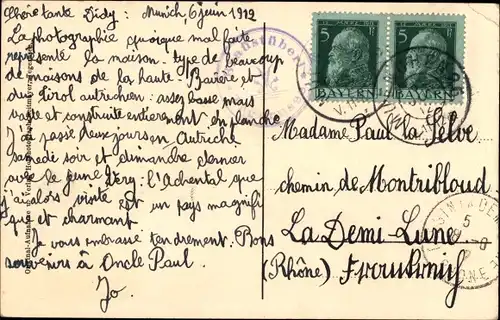 Chère tante Didy : Munich 6 juin 1912
La photographie quoique mal faite
représente la maison type de beaucoup
de maisons de la haute Bavière et
du Tirol autrichien assez basse mais
vaste et construite entièrement en planche
J'ai passé deux jours en Autriche
samedi soir et dimanche dernier
avec le jeune Véry; l'Achental que
j'ai alors visité est un pays magnifique
et charmant
Je vous embrasse tendrement. Bons
souvenirs à Oncle Paul.
Jo.
5 5
BAYERN BAYERN
Madame Paul la Selve
chemin de Montribloud
La Demi-Lune
(Rhône) Frankreich